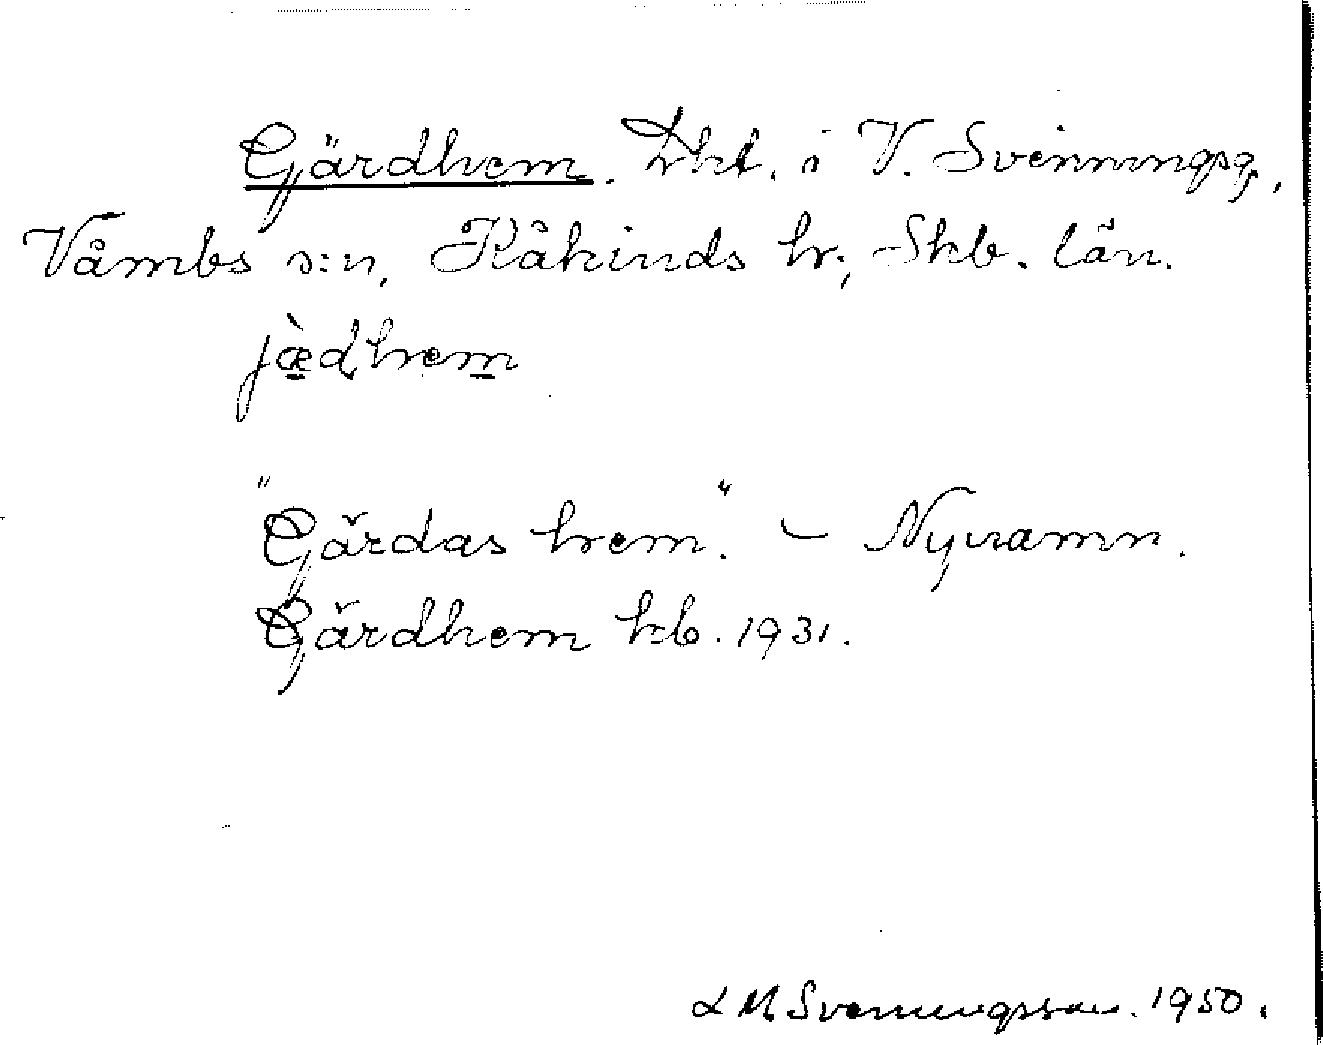 Gärdhem. Lht. i V. Svenningsg.,
Våmbs s:n, Kåkinds hr., Skb. län.
jæ̀dhem
"Gärdas hem." – Nynamn.
Gärdhem kb. 1931.
L M Svenningsson. 1950.